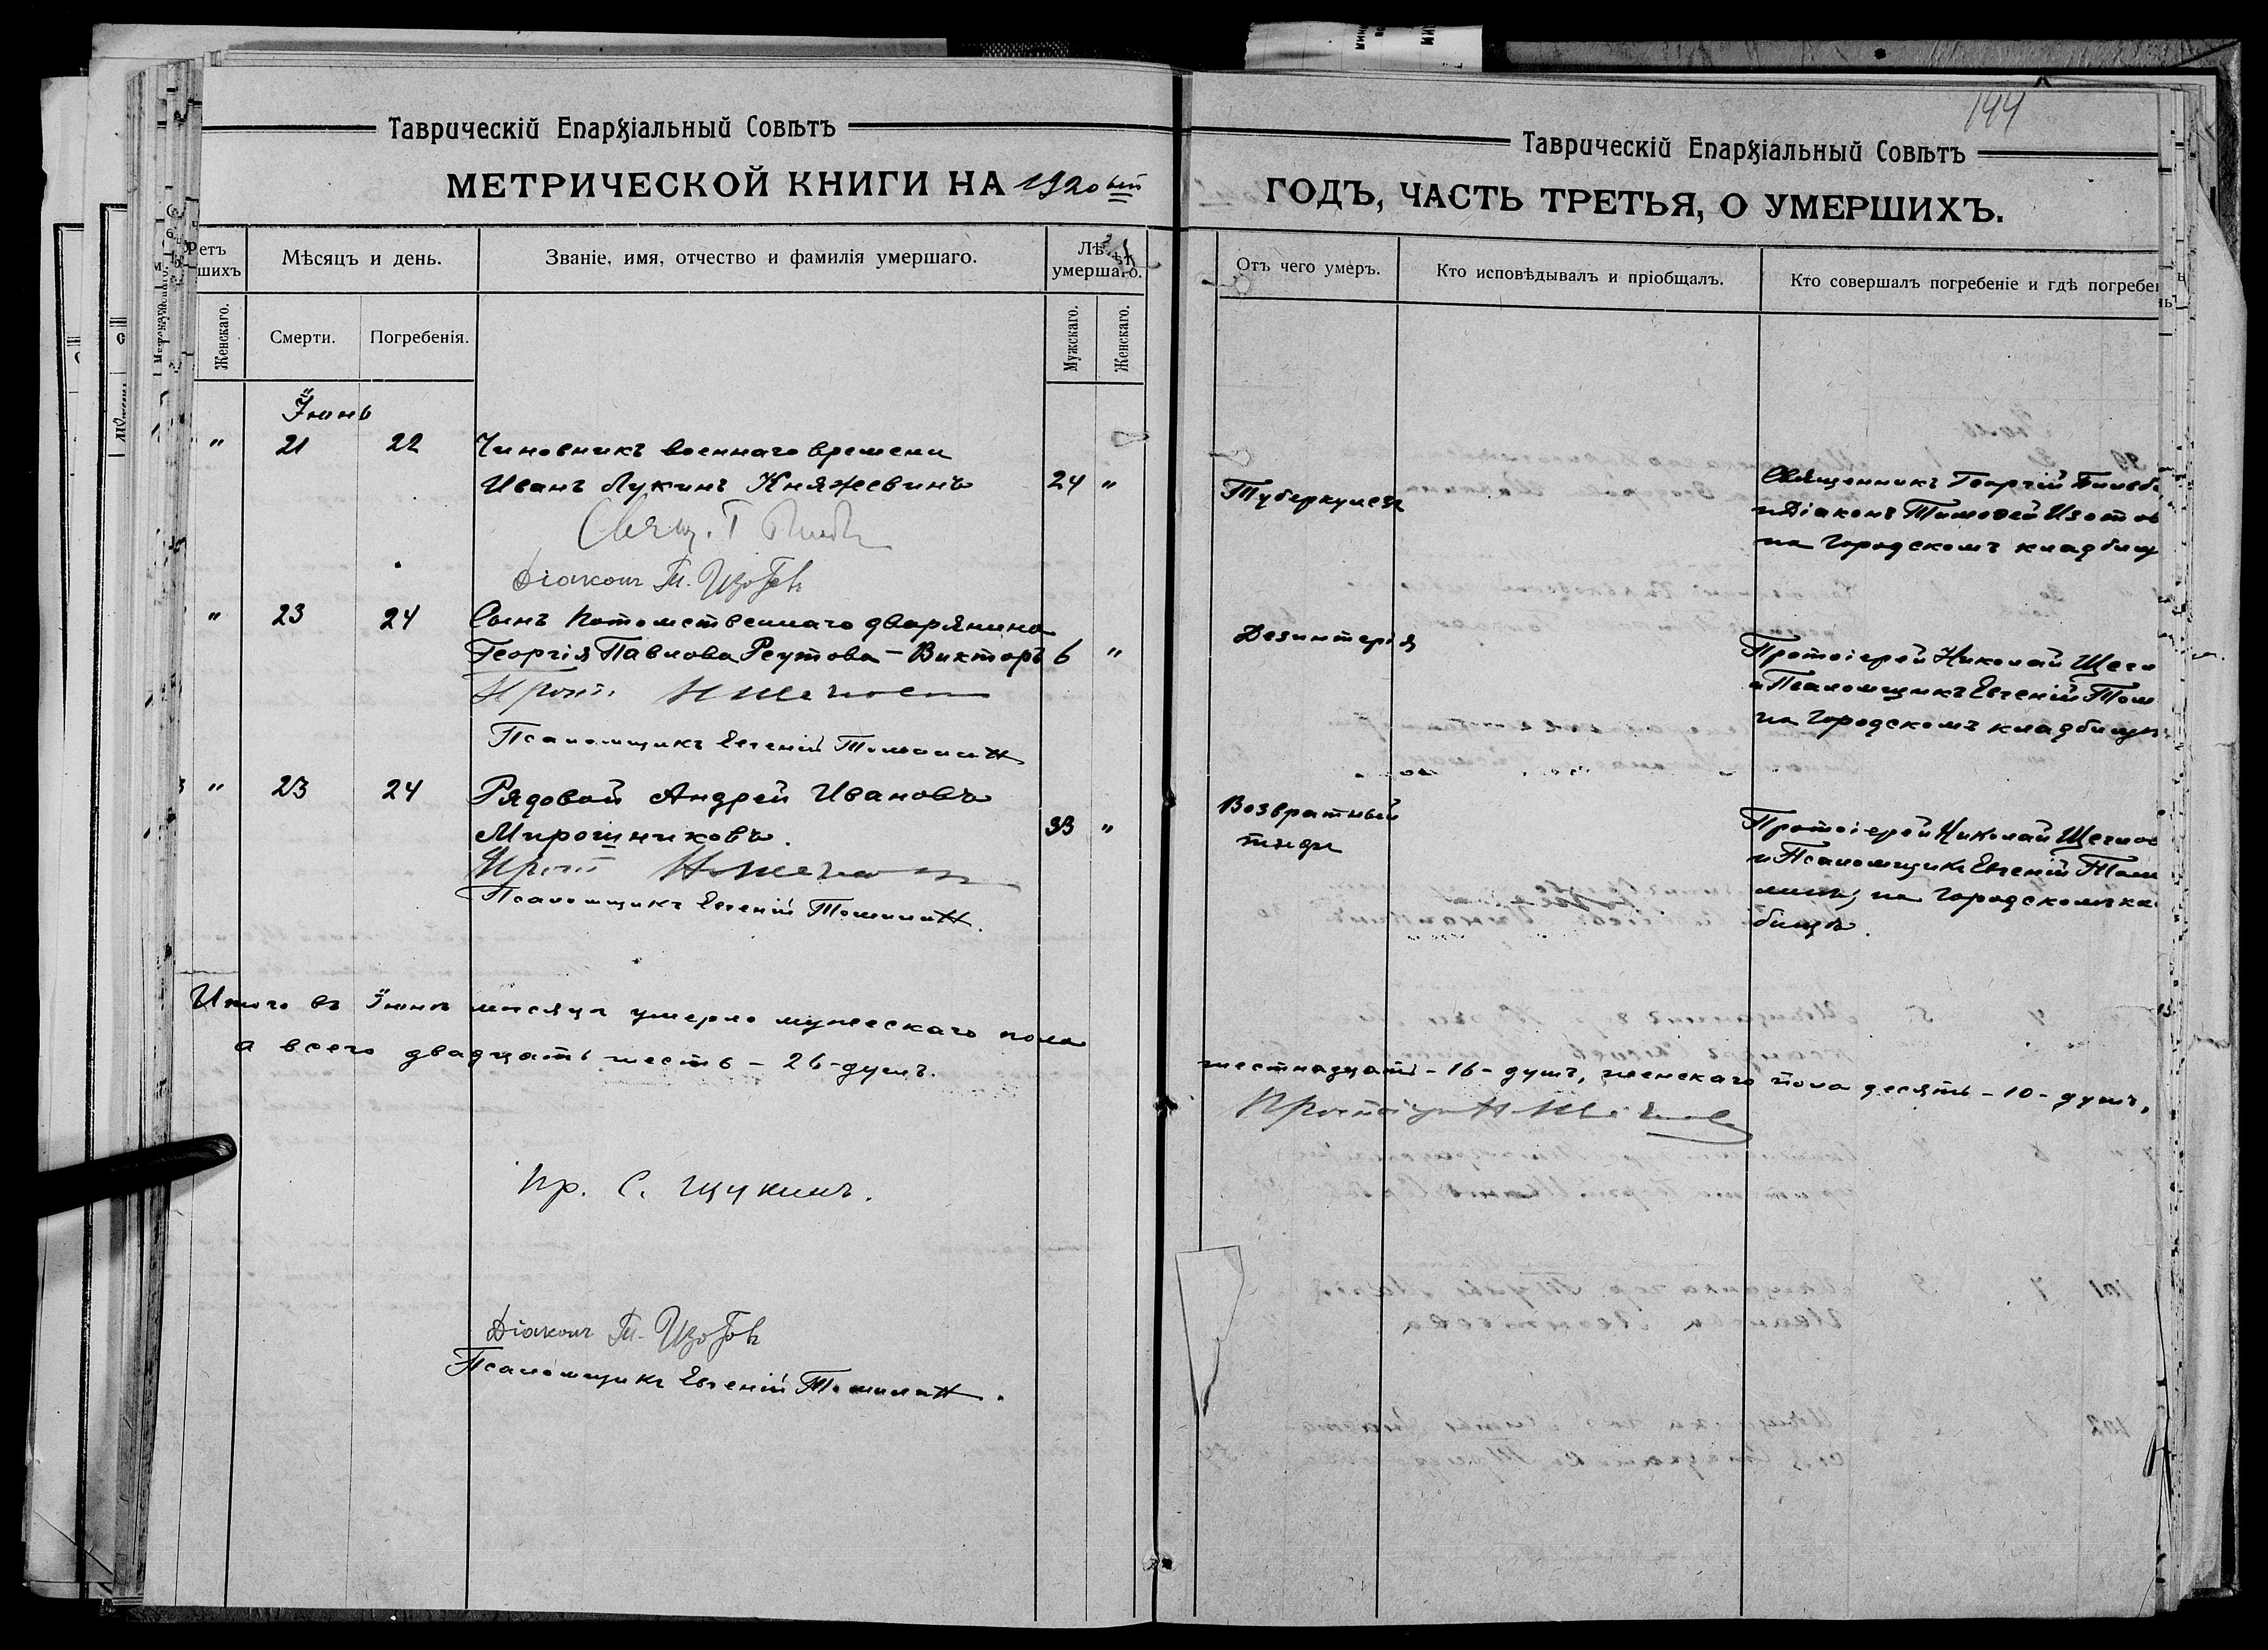 Таврическій Епархіальный Совѣтъ
МЕТРИЧЕСКОЙ КНИГИ НА 1920ый
етъ
шихъ
Мѣсяцъ и день.
Званіе, имя, отчество и фамилія умершаго.
умершаго.
Женскаго.
Смерти.
Погребенія.
Мужскаго.
Женскаго.
Іюнь
" 21 22 Чиновникъ военнаго времени
Иванъ Лукинъ Княжевинъ 24 "
Свящ. Г
Діаконъ Т. Изотовъ
" 23 24 Сынъ потомственнаго дворянина
Георгія Павлова Реутова - Викторъ 6 "
Прот. Н Щегловъ
Псаломщикъ Евгеній Томилинъ
" 23 24 Рядовой Андрей Ивановъ
Мирошниковъ. 33 "
Прот Н Щегловъ
Псаломщикъ Евгеній Томилинъ.
Итого въ Іюнѣ мѣсяцѣ умерло мужескаго пола
а всего двадцать шесть - 26 - душъ.
Пр. С. Щукинъ.
Діаконъ Т. Изотовъ
Псаломщикъ Евгеній Томилинъ.
144
Таврическій Епархіальный Совѣтъ
ГОДЪ, ЧАСТЬ ТРЕТЬЯ, О УМЕРШИХЪ.
Отъ чего умеръ.
Кто исповѣдывалъ и пріобщалъ.
Кто совершалъ погребеніе и гдѣ погребен
Туберкулезъ
Священникъ Георгій
и Діаконъ Тимофей Изотов
на Городскомъ кладбищ
Дезинтерія
Протоіерей Николай Щегл
и Псаломщикъ Евгеній Том
на Городскомъ кладбищѣ
Возвратный
тифъ
Протоіерей Николай Щеглов
и Псаломщикъ Евгеній Томи
линъ, на Городскомъ кла
бищѣ.
шестнадцать - 16 - душъ, женскаго пола десять - 10 - душъ,
Протоіерей Н Щегловъ